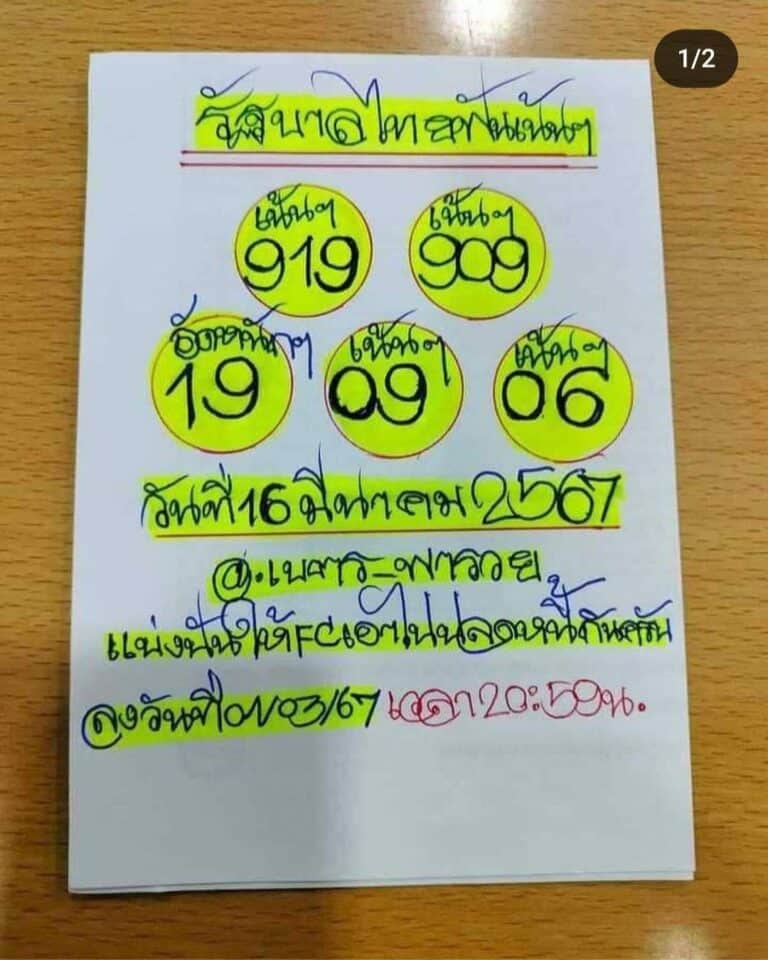 1/2
รัฐบาลไทยฟันเน้นๆ
เน้นๆ เน้นๆ
919 909
อัดหนักๆ เน้นๆ เน้นๆ
19 09 06
วันที่ 16 มีนาคม 2567
พารวย
แบ่งปันให้ FC เอาไปปลดหนี้กันครับ
ลงวันที่ 01/03/67 เวลา 20:59 น.